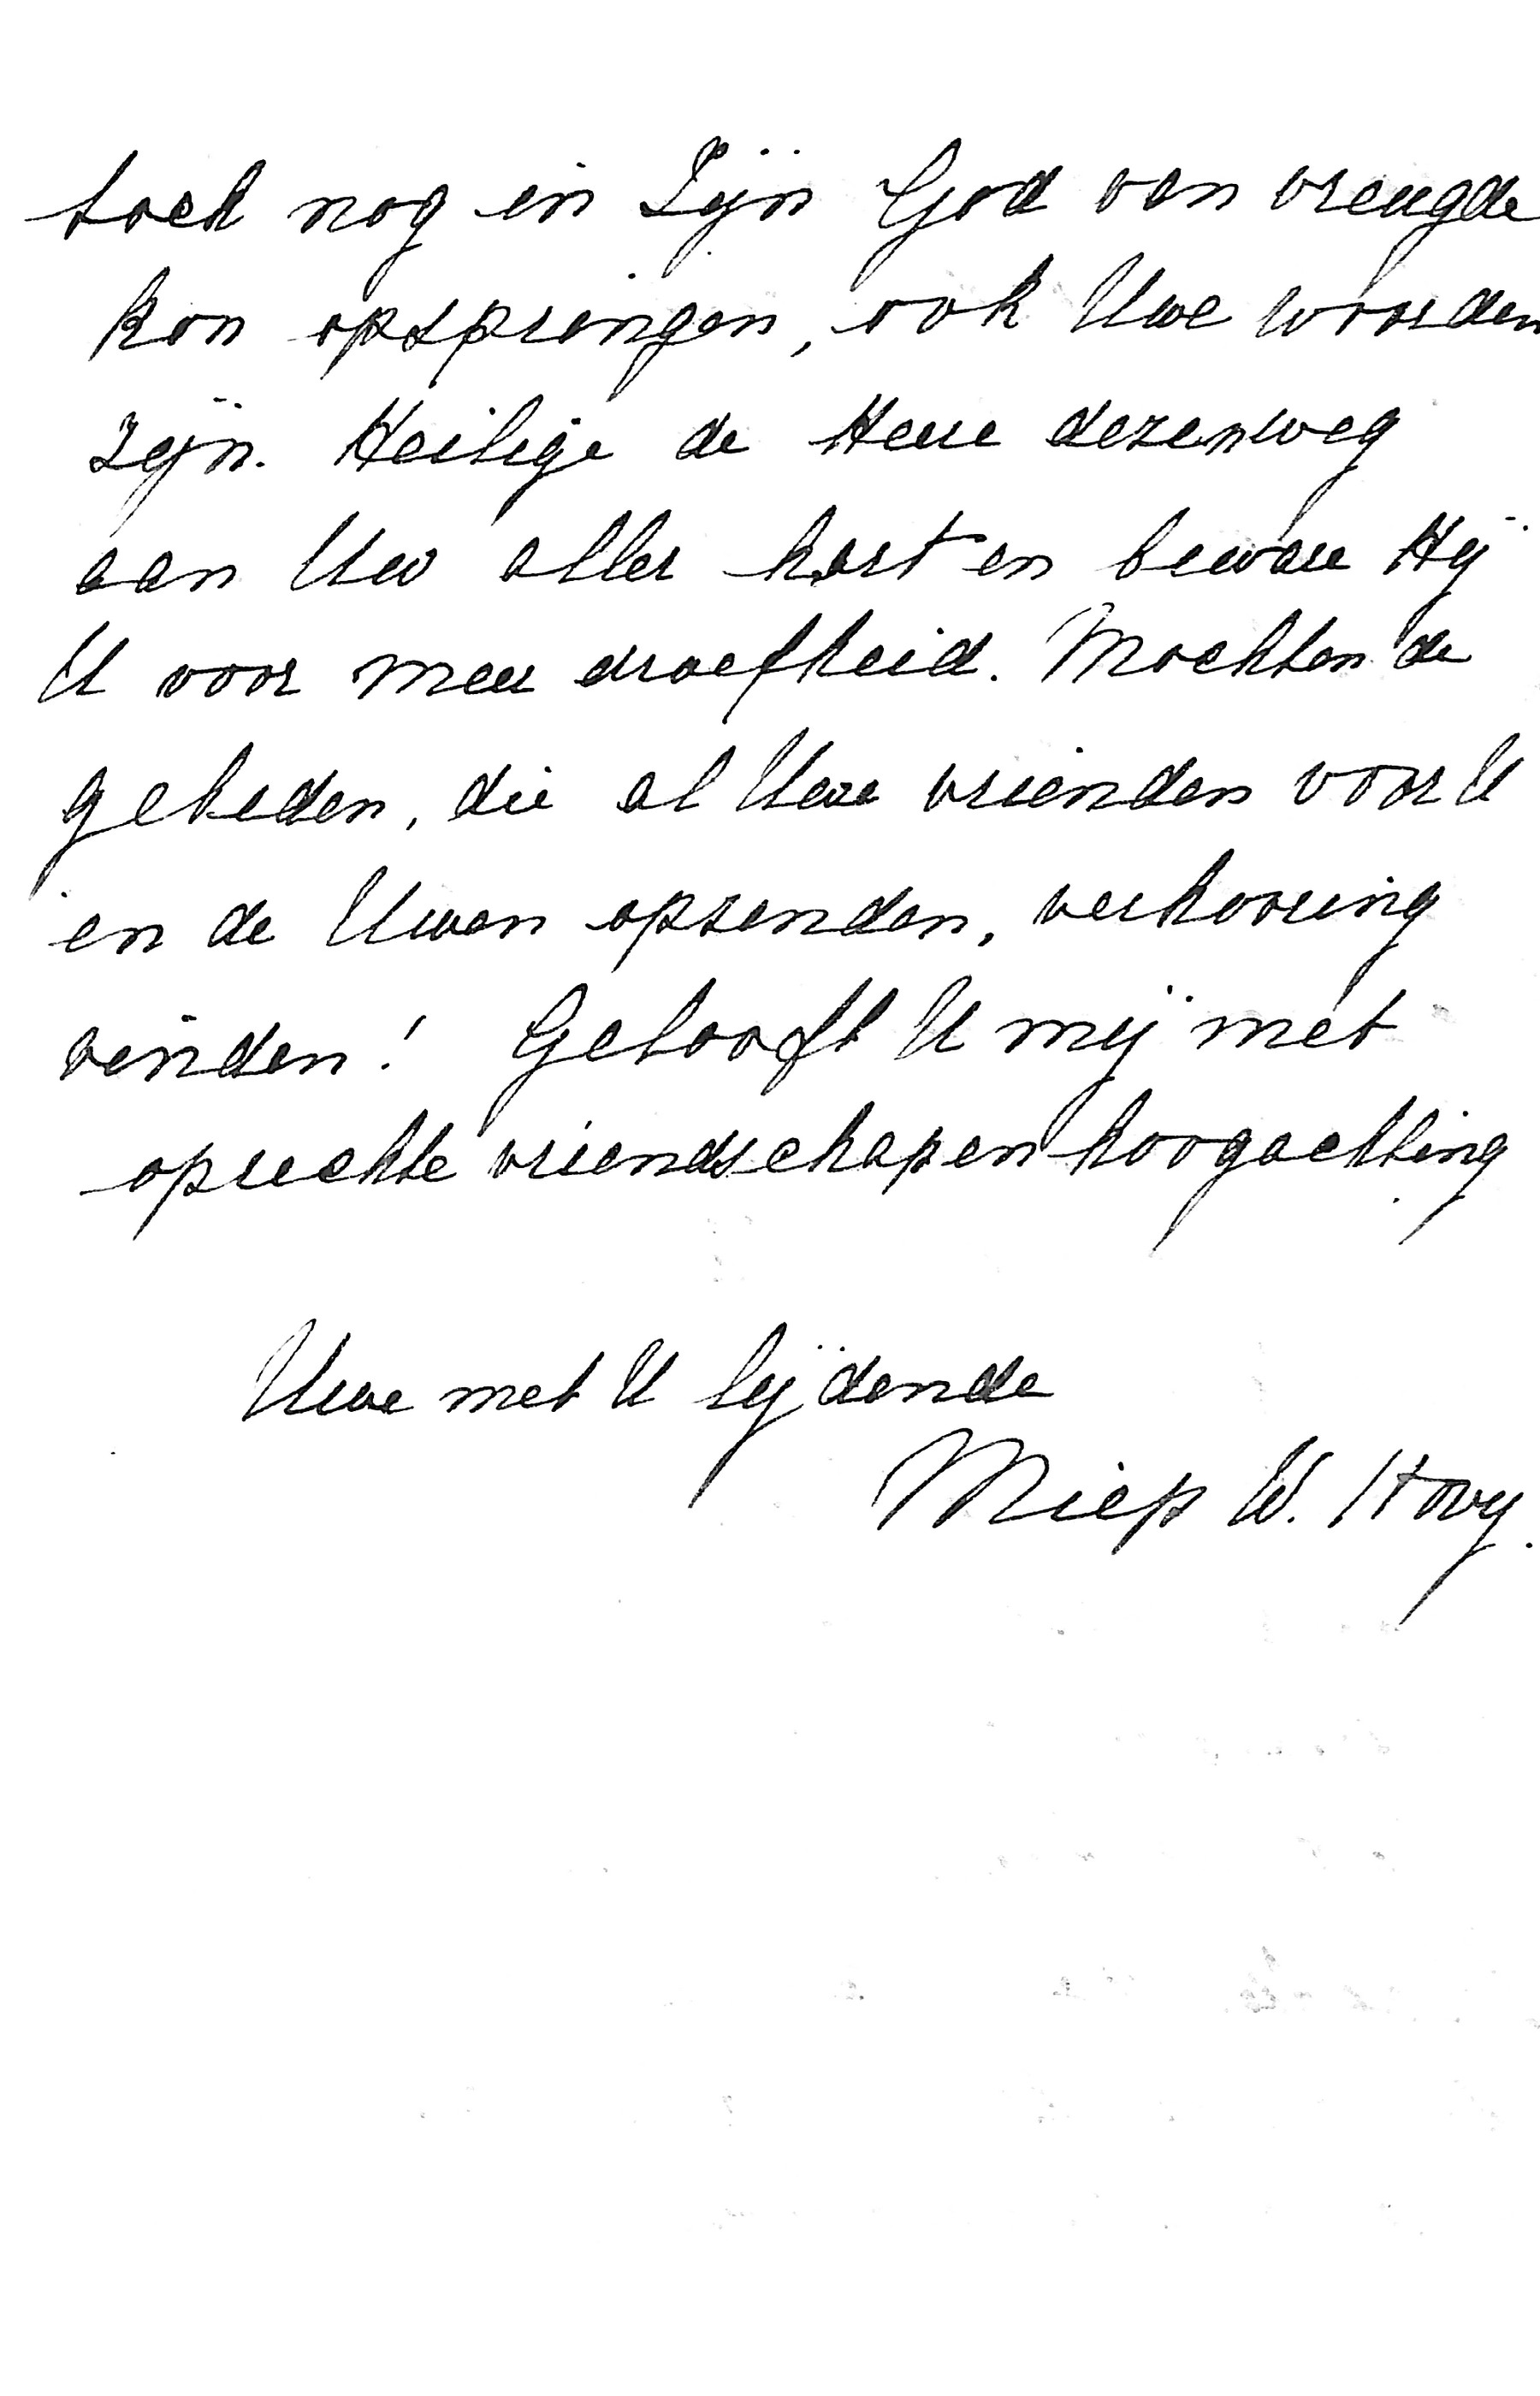 toch nog in Zijn God van vreugde
kon opspringen, ook Uwe woorden
zijn. Heilige de Heere dezen weg
aan Uw aller hart en beware Hij
U voor meer droefheid. Mochten de
gebeden, die al Uwe vrienden voor U
en de Uwen opzenden, verhooring
vinden! Gelooft U mij met
oprechte vriendschap en hoogachting
Uwe met U lijdende
Miep W. Hovy.